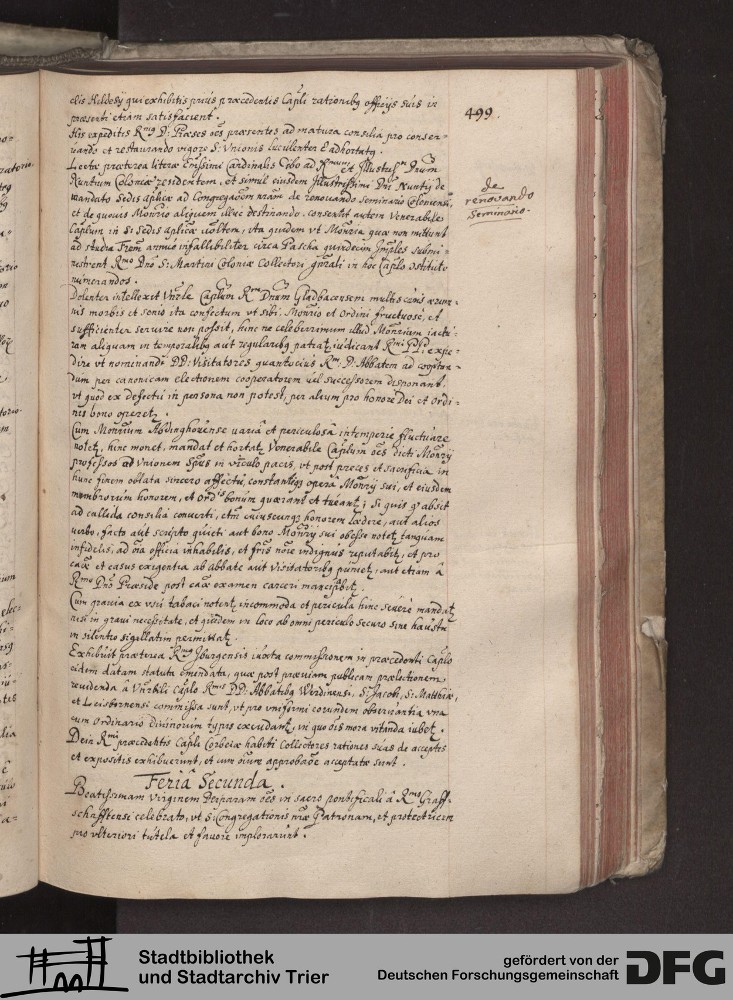 499.
elis Hildesij qui exhibitis prius præcedentis Capli rationibq officijs suis in
præsenti etiam satisfacient.
His expeditis Rmq D: Præses oēs præsentes ad matura consilia pro conser-
uando et restaurando vigore S: Vnionis luculenter Eadhortatq.
Lectæ præterea literæ Emissimi Cardinalis Cibo ad et Illustrissm Dnum
Nuntium Coloniæ residentem, et simul eiusdem Illustrissimi Dni Nuntij de
mandato Sedis aplicæ ad Congregaōnem nram de renovando Seminario Coloniensi,
et de quouis Monrio aliquem illuc destinando. Consensit autem Venerabile
Caplum in S: Sedis aplicæ uoltem, vta quidem vt Monria quæ non mittunt
ad studia annuè infallibiliter circa Pascha quindecim Imples submi-
nistrent Rmo Dno S: Martini Coloniæ Collectori gnrali in hoc Caplo
numerandos.
de
renovando
Seminario.
Dolenter intellexit Vnrle Caplum Rm Dnum Gladbacensem multis
nis morbis et senio ita confectum vt sibi Monrio et Ordini fructuosè, et
sufficienter seruire non possit, hinc ne celeberrimum illud Monrium iactu-
ram aliquam in temporalibq aut regularibq patiatr, iudicant Rmi PP: expe-
dire vt nominandi DD: Visitatores quantocius Rm D: Abbatem ad
dum per canonicam electionem cooperatorem uel successorem disponant.
vt quod ex defectu in persona non potest, per alium pro honore Dei et Ordi-
nis bono operetr.
Cum Monrium Abdinghouense variâ et periculosâ intemperie fluctuare
notetr, hinc monet, mandat et hortatr Venerabile Caplum oēs dicti Monrij
professos ad Vnionem Spus in vinculo pacis, vt post preces et sacrificia in
hunc finem oblata sincero affectu, constantiq opera Monrij sui, et eiusdem
membrorum honorem, et Ordis bonum quærant et tueantr; Si quis qd absit
ad callida consilia conuerti, etm cuiuscunq honorem lædere, aut alios
uerbo, facto aut scripto quieti aut bono Monrij sui obesse notetr, tanquam
infidelis, ad oīa officia inhabilis, et fris noīe indignus reputabitr, et pro
caæ et casus exigentia ab Abbate aut Visitatoribq punietr, aut etiam â
Rmo Dno Præside post caæ examen carceri mancipabitr.
Cum grauia ex vsu tabaci notentr incommoda et pericula hinc seuerè mandatr
nisi in graui necessitate, et quidem in loco ab omni periculo securo sine haustu
in silentio sigillatim permittatr.
Exhibuit præterea Rmq Jburgensis iuxta commissionem in præcedenti Caplo
eidem datam statuta emendata, quæ post præuiam publicam prælectionem
reuidenda â Vnrbili Caplo Rmis DD: Abbatibq Werdinensi, S: Jacobi, S: Matthiæ,
et Leisbornensi commissa sunt, vt pro vniformi eorundem obseruantia vna
cum Ordinario diuinorum typis excudantr, in quo oīs mora vitanda iubetr.
Dein Rmi præcedentis Capli Corbeiæ habiti Collectores rationes suas de acceptis
et expositis exhibuerunt, et cum oīum approbaōe acceptatæ sunt.
Feriâ Secunda.
Beatissimam Virginem Deiparam oēs in sacro pontificali â Rmo Graff-
schafftensi celebrato, vt S: Congregationis nræ Patronam, et protectricem
pro vlteriori tutela et fauore implorarunt.
Stadtbibliothek
und Stadtarchiv Trier
gefördert von der
Deutschen Forschungsgemeinschaft
DFG